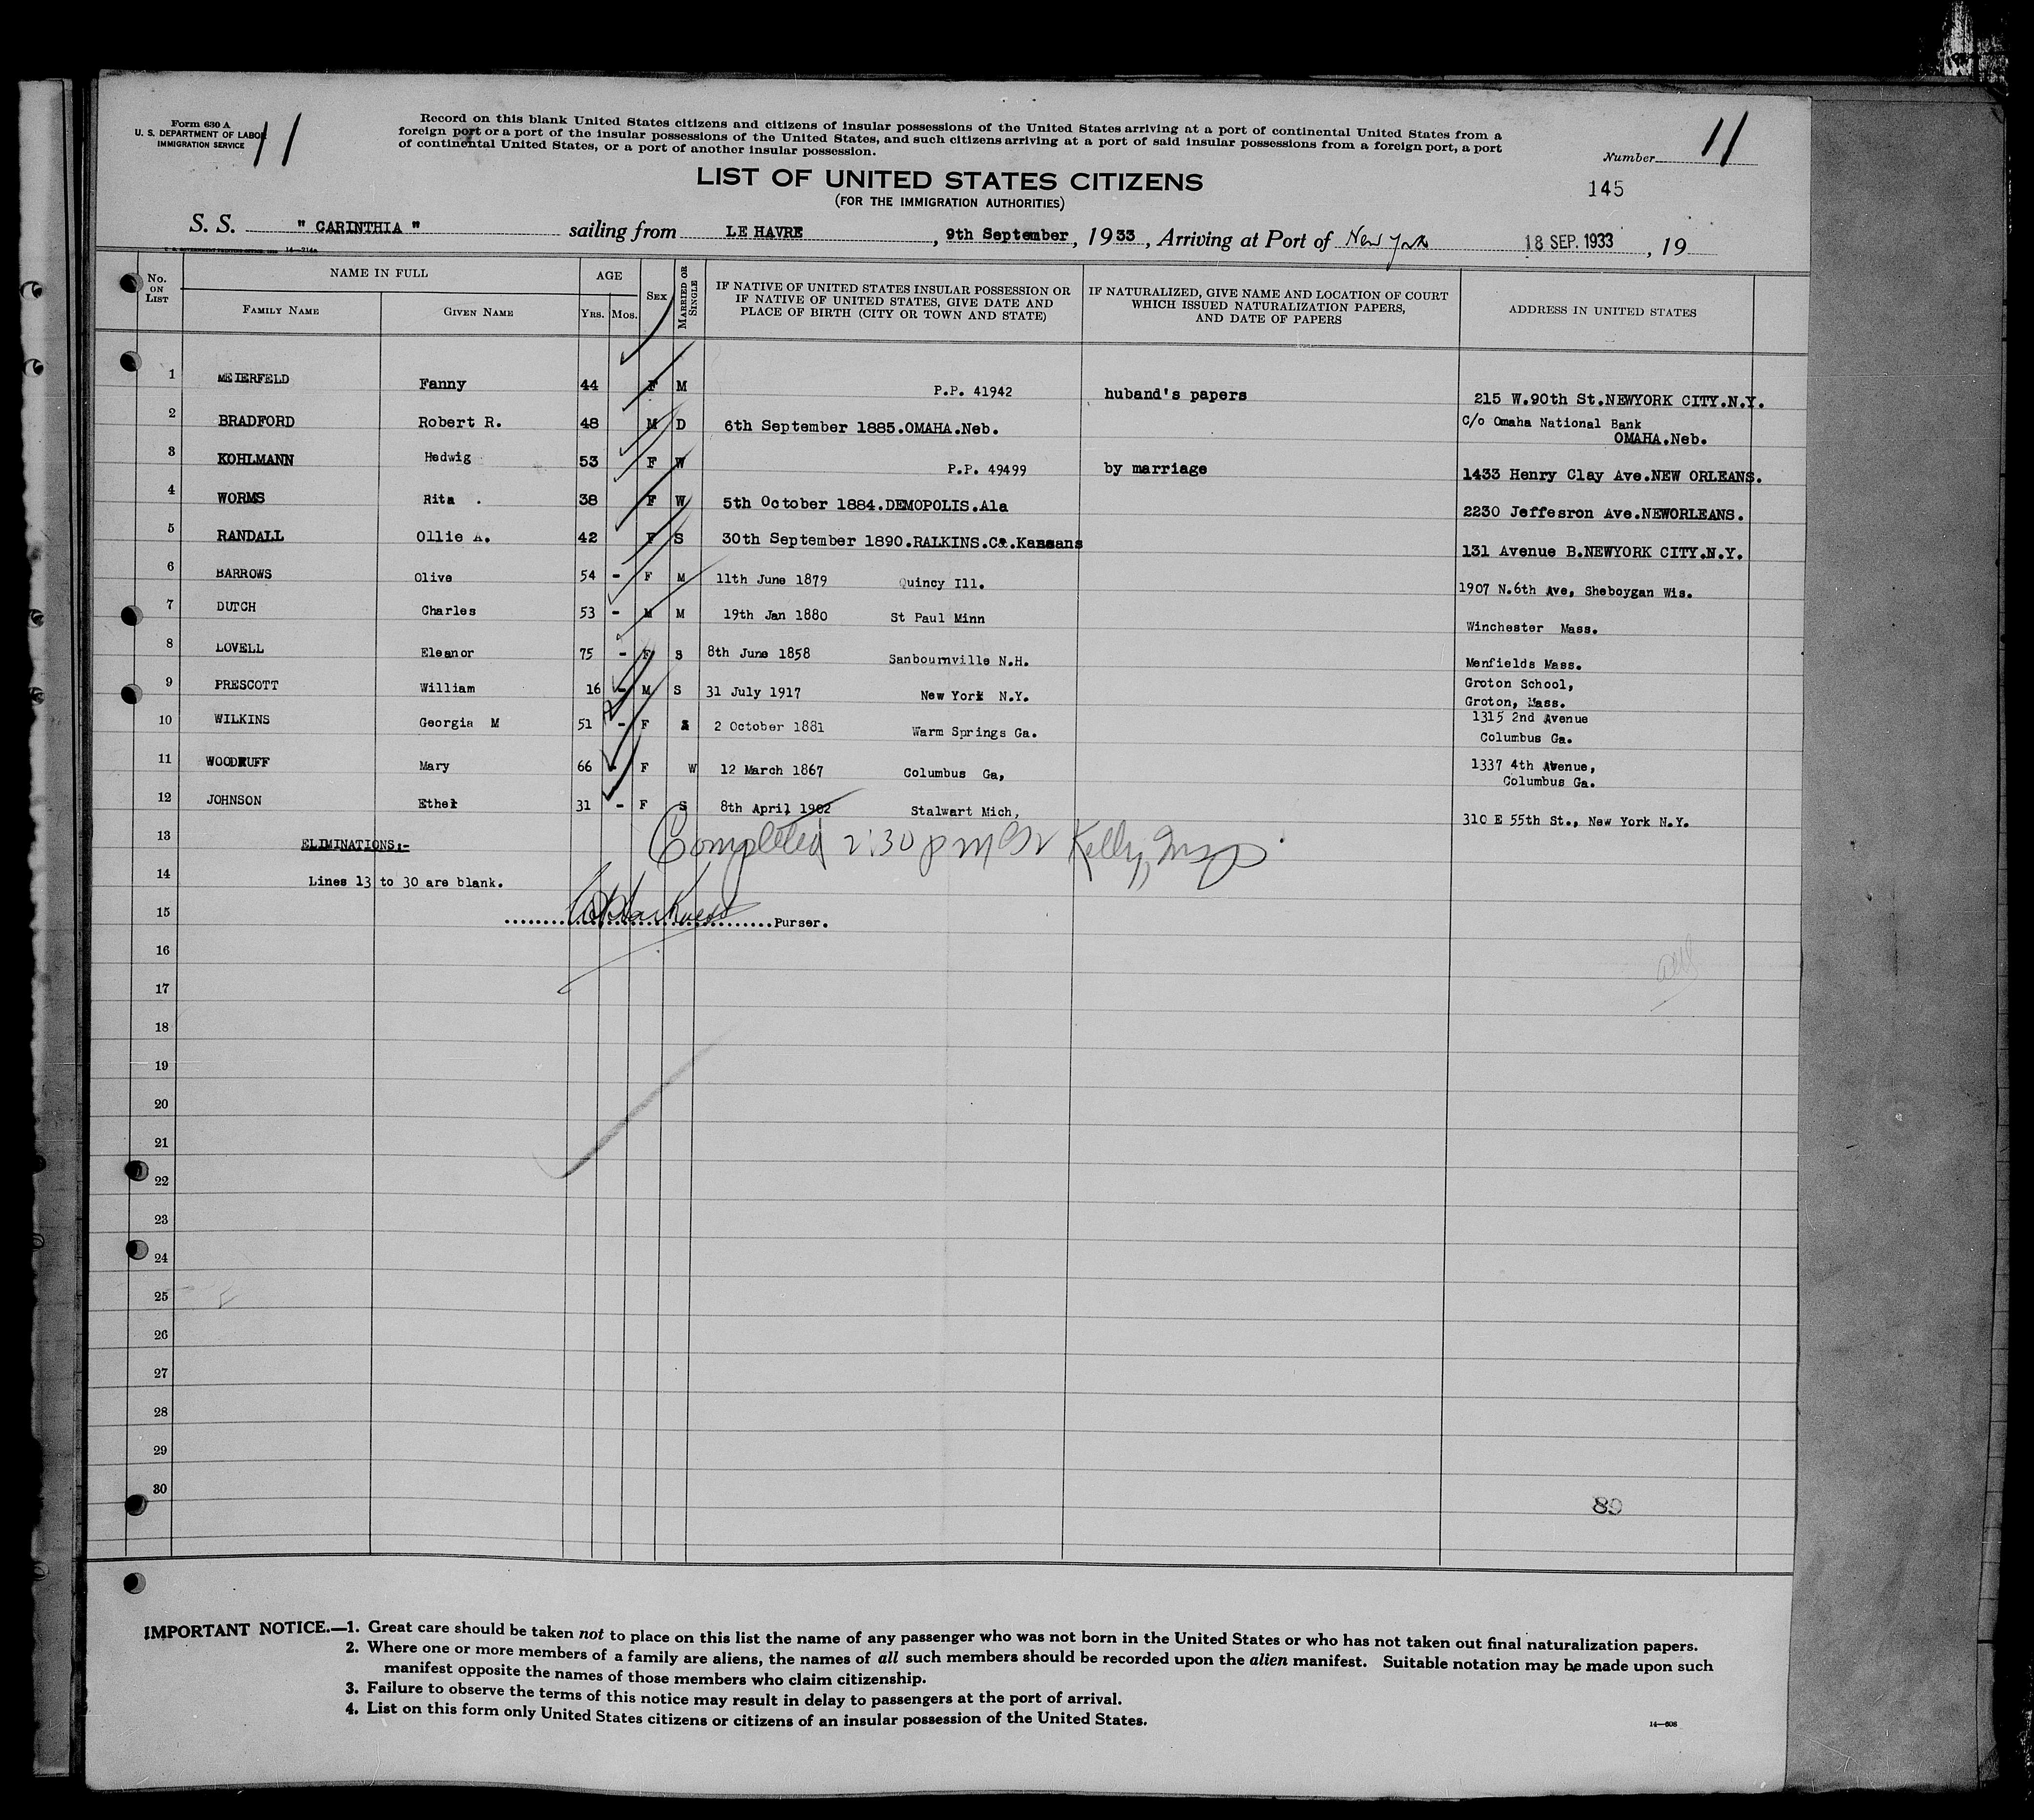 Form 630 A
U. S. DEPARTMENT OF LABOR
IMMIGRATION SERVICE
11
Record on this blank United States citizens and citizens of insular possessions of the United States arriving at a port of continental United States from a
foreign port or a port of the insular possessions of the United States, and such citizens arriving at a port of said insular possessions from a foreign port, a port
of continental United States, or a port of another insular possession.
Number 11
145
LIST OF UNITED STATES CITIZENS
(FOR THE IMMIGRATION AUTHORITIES)
S. S. " CARINTHIA " sailing from LE HAVRE, 9th September, 1933, Arriving at Port of New York 18 SEP. 1933, 19
No. ON LIST NAME IN FULL FAMILY NAME GIVEN NAME AGE YRS. MOS. SEX MARRIED OR SINGLE IF NATIVE OF UNITED STATES INSULAR POSSESSION OR IF NATIVE OF UNITED STATES, GIVE DATE AND PLACE OF BIRTH (CITY OR TOWN AND STATE) IF NATURALIZED, GIVE NAME AND LOCATION OF COURT WHICH ISSUED NATURALIZATION PAPERS, AND DATE OF PAPERS ADDRESS IN UNITED STATES
1 MEIERFELD Fanny 44 F M P.P. 41942 huband's papers 215 W.90th St.NEWYORK CITY.N.Y.
2 BRADFORD Robert R. 48 M D 6th September 1885.OMAHA.Neb. C/o Omaha National Bank
OMAHA.Neb.
3 KOHLMANN Hedwig 53 F W P.P. 49499 by marriage 1433 Henry Clay Ave.NEW ORLEANS.
4 WORMS Rita . 38 F W 5th October 1884.DEMOPOLIS.Ala 2230 Jeffesron Ave.NEWORLEANS.
5 RANDALL Ollie A. 42 F S 30th September 1890.RALKINS.Co.Kansans 131 Avenue B.NEWYORK CITY.N.Y.
6 BARROWS Olive 54 - F M 11th June 1879 Quincy Ill. 1907 N.6th Ave, Sheboygan Wis.
7 DUTCH Charles 53 - M M 19th Jan 1880 St Paul Minn Winchester Mass.
8 LOVELL Eleanor 75 - F S 8th June 1858 Sanbournville N.H. Menfields Mass.
9 PRESCOTT William 16 - M S 31 July 1917 New York N.Y. Groton School,
Groton, Mass.
10 WILKINS Georgia M 51 - F 2 October 1881 Warm Springs Ga. 1315 2nd Avenue
Columbus Ga.
11 WOODRUFF Mary 66 - F W 12 March 1867 Columbus Ga, 1337 4th Avenue,
Columbus Ga.
12 JOHNSON Ethel 31 - F S 8th April 1902 Stalwart Mich, 310 E 55th St., New York N.Y.
13 ELIMINATIONS:- Completed 2:30 pm Kelly, Insp
14 Lines 13 to 30 are blank.
15 Purser.
16
17
18
19
20
21
22
23
24
25
26
27
28
29
30
89
IMPORTANT NOTICE.—1. Great care should be taken not to place on this list the name of any passenger who was not born in the United States or who has not taken out final naturalization papers.
2. Where one or more members of a family are aliens, the names of all such members should be recorded upon the alien manifest. Suitable notation may be made upon such
manifest opposite the names of those members who claim citizenship.
3. Failure to observe the terms of this notice may result in delay to passengers at the port of arrival.
4. List on this form only United States citizens or citizens of an insular possession of the United States.
14—608